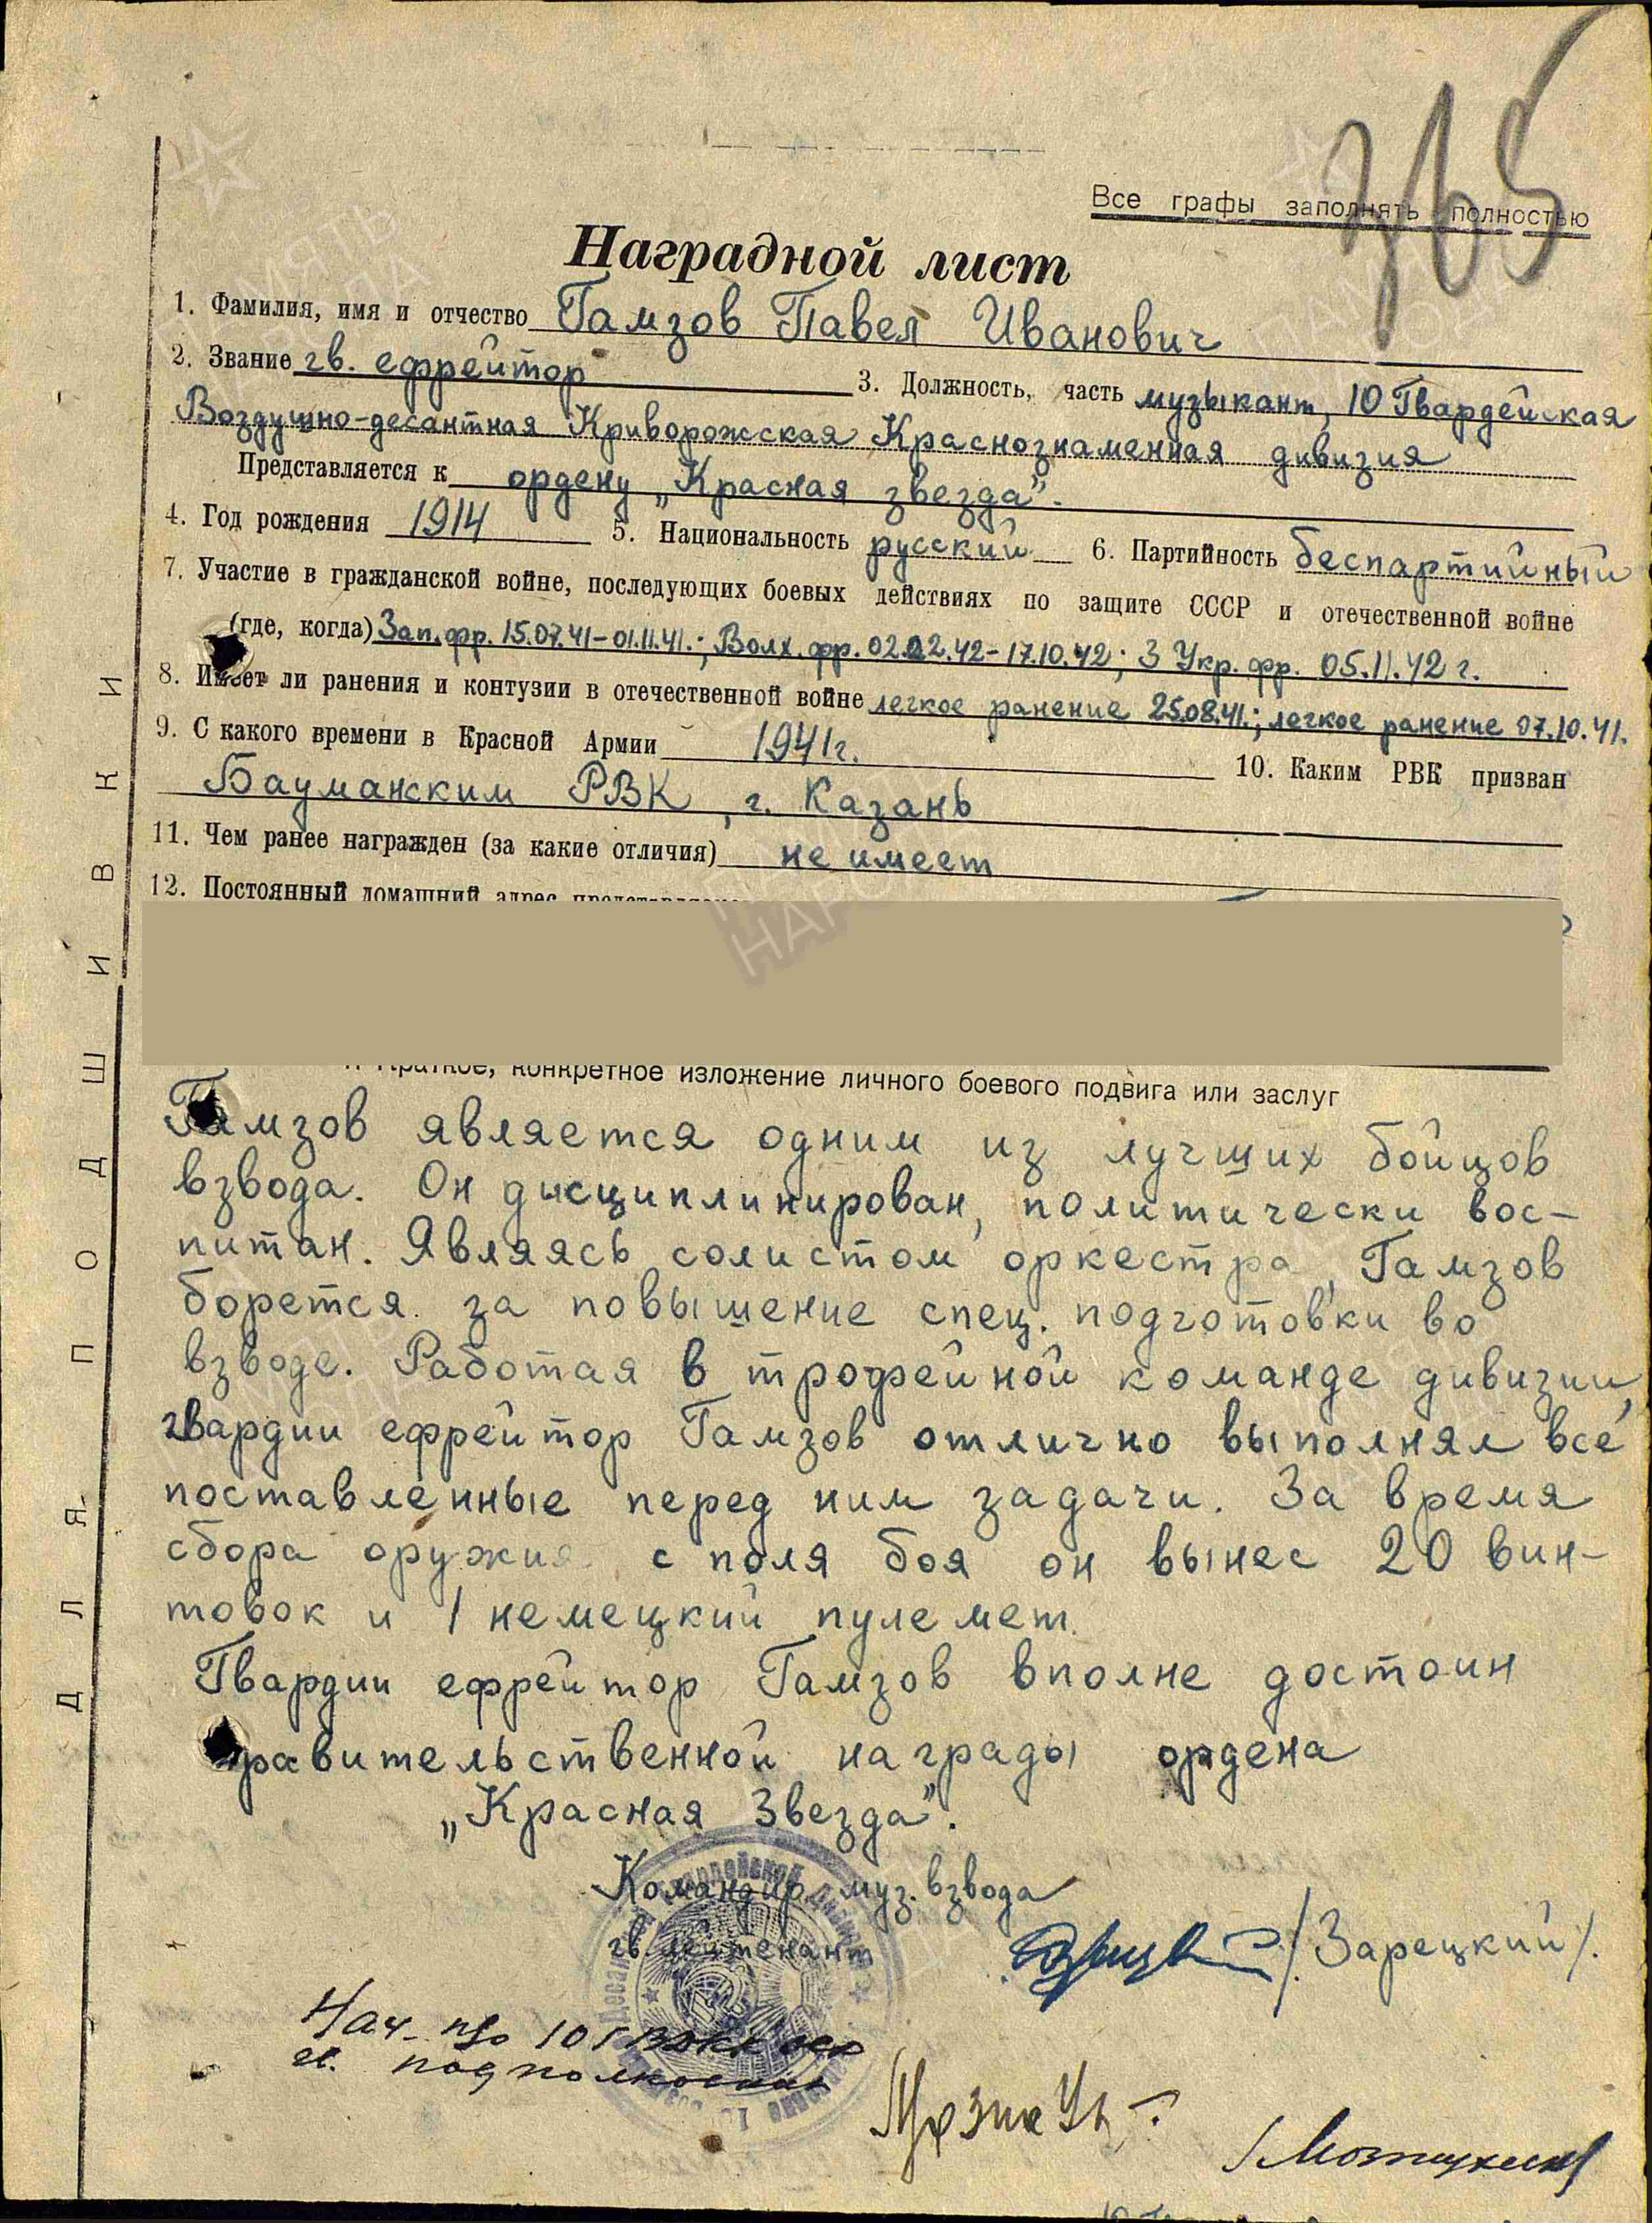 365
Все графы заполнять полностью
Наградной лист
1. Фамилия, имя и отчество Гамзов Павел Иванович
2. Звание гв. ефрейтор 3. Должность, часть музыкант, 10 Гвардейская
Воздушно-десантная Криворожская Краснознаменная дивизия
Представляется к ордену „Красная звезда".
4. Год рождения 1914 5. Национальность русский 6. Партийность беспартийный
7. Участие в гражданской войне, последующих боевых действиях по защите СССР и отечественной войне
(где, когда) Зап. фр. 15.07.41-01.11.41.; Волх. фр. 02.02.42-17.10.42; 3 Укр. фр. 05.11.42 г.
8. Имеет ли ранения и контузии в отечественной войне легкое ранение 25.08.41.; легкое ранение 07.10.41.
9. С какого времени в Красной Армии 1941г. 10. Каким РВК призван
Бауманским РВК, г. Казань
11. Чем ранее награжден (за какие отличия) не имеет
12. Постоянный домашний адрес
Краткое, конкретное изложение личного боевого подвига или заслуг
Гамзов является одним из лучших бойцов
взвода. Он дисциплинирован, политически вос-
питан. Являясь солистом оркестра, Гамзов
борется за повышение спец. подготовки во
взводе. Работая в трофейной команде дивизии,
гвардии ефрейтор Гамзов отлично выполнял все
поставленные перед ним задачи. За время
сбора оружия с поля боя он вынес 20 вин-
товок и 1 немецкий пулемет.
Гвардии ефрейтор Гамзов вполне достоин
правительственной награды ордена
„Красная Звезда".
Командир муз. взвода
гв. лейтенант /Зарецкий/.
Нач.
гв. подполковник
ДЛЯ ПОДШИВКИ